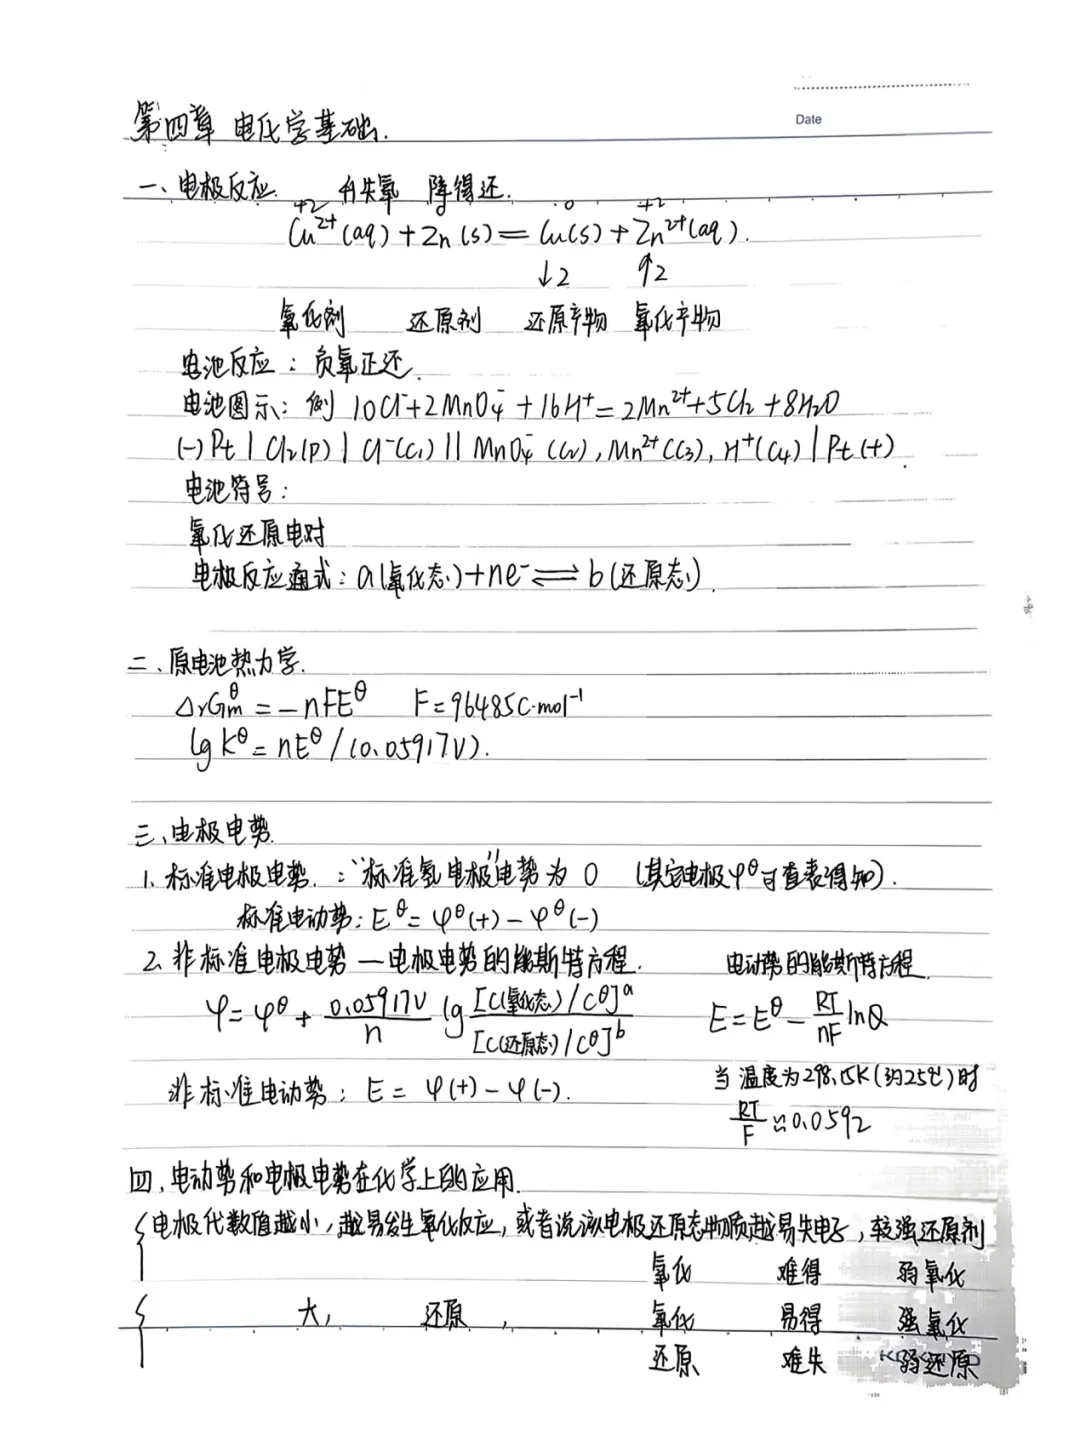 Date
第四章 电化学基础.
一、电极反应. 升失氧 降得还.
+2 0 +2
Cu²⁺(aq)+Zn(s)=Cu(s)+Zn²⁺(aq).
↓2 ↑2
氧化剂 还原剂 还原产物 氧化产物
电池反应：负氧正还.
电池图示：例 10Cl⁻+2MnO₄⁻+16H⁺=2Mn²⁺+5Cl₂+8H₂O
(-)Pt|Cl₂(P)|Cl⁻(C₁)||MnO₄⁻(C₂),Mn²⁺(C₃),H⁺(C₄)|Pt(+).
电池符号：
氧化还原电对
电极反应通式：a(氧化态)+ne⁻⇌b(还原态).
二、原电池热力学.
ΔrGmθ=-nFEθ F=96485C·mol⁻¹
lgKθ=nEθ/(0.05917V).
三、电极电势.
1. 标准电极电势.："标准氢电极"电势为0 (其它电极φθ可查表得知).
标准电动势：Eθ=φθ(+)-φθ(-)
2. 非标准电极电势—电极电势的能斯特方程. 电动势的能斯特方程.
φ=φθ+0.05917V/n lg [C(氧化态)/Cθ]ᵃ/[C(还原态)/Cθ]ᵇ E=Eθ-RT/nF lnQ
当温度为298.15K(约25℃)时
非标准电动势：E=φ(+)-φ(-). RT/F≈0.0592
四、电动势和电极电势在化学上的应用.
电极代数值越小,越易发生氧化反应,或者说该电极还原态物质越易失电子,较强还原剂
氧化 难得 弱氧化
大, 还原, 氧化 易得 强氧化
还原 难失 弱还原